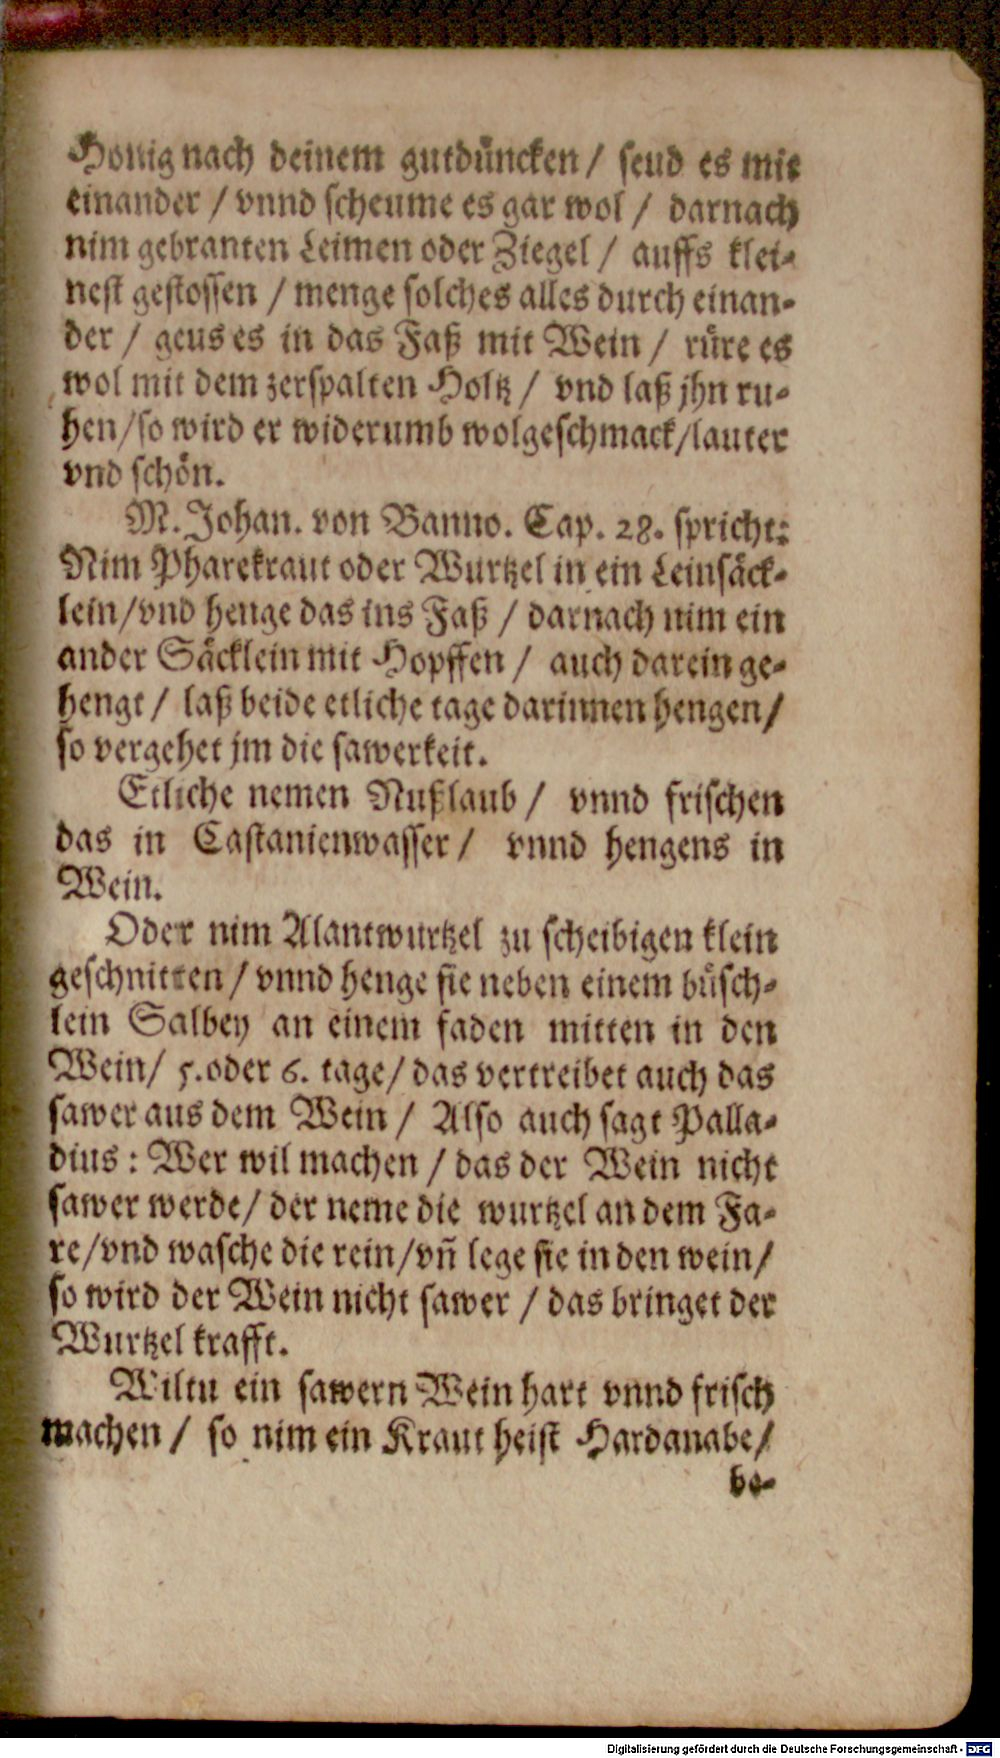 Honig nach deinem gutdüncken / seud es mit
einander / vnnd scheume es gar wol / darnach
nim gebranten Leimen oder Ziegel / auffs klei-
nest gestossen / menge solches alles durch einan-
der / geus es in das Faß mit Wein / rüre es
wol mit dem zerspalten Holtz / vnd laß jhn ru-
hen/so wird er widerumb wolgeschmack/lauter
vnd schön.
M. Johan. von Banno. Cap. 28. spricht:
Nim Pharekraut oder Wurtzel in ein Leinsäck-
lein/vnd henge das ins Faß / darnach nim ein
ander Säcklein mit Hopffen / auch darein ge-
hengt / laß beide etliche tage darinnen hengen/
so vergehet jm die sawerkeit.
Etliche nemen Nußlaub / vnnd frischen
das in Castanienwasser / vnnd hengens in
Wein.
Oder nim Alantwurtzel zu scheibigen klein
geschnitten / vnnd henge sie neben einem büsch-
lein Salbey an einem faden mitten in den
Wein/ 5. oder 6. tage/ das vertreibet auch das
sawer aus dem Wein / Also auch sagt Palla-
dius : Wer wil machen / das der Wein nicht
sawer werde/ der neme die wurtzel an dem Fa-
re/vnd wasche die rein/vn̄ lege sie in den wein/
so wird der Wein nicht sawer / das bringet der
Wurtzel krafft.
Wiltu ein sawern Wein hart vnnd frisch
machen / so nim ein Kraut heist Hardanabe/
be-
Digitalisierung gefördert durch die Deutsche Forschungsgemeinschaft - DFG